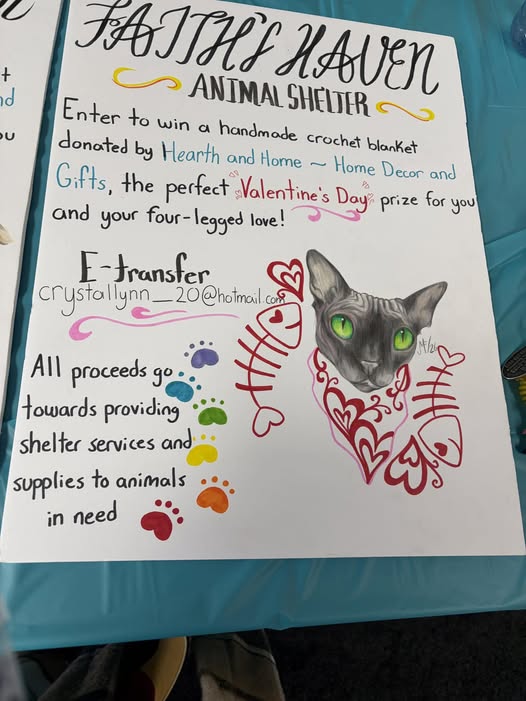 FAITH'S HAVEN
ANIMAL SHELTER
Enter to win a handmade crochet blanket
donated by Hearth and Home ~ Home Decor and
Gifts, the perfect Valentine's Day prize for you
and your four-legged love!
E-transfer
crystallynn_20@hotmail.com
All proceeds go
towards providing
shelter services and
supplies to animals
in need